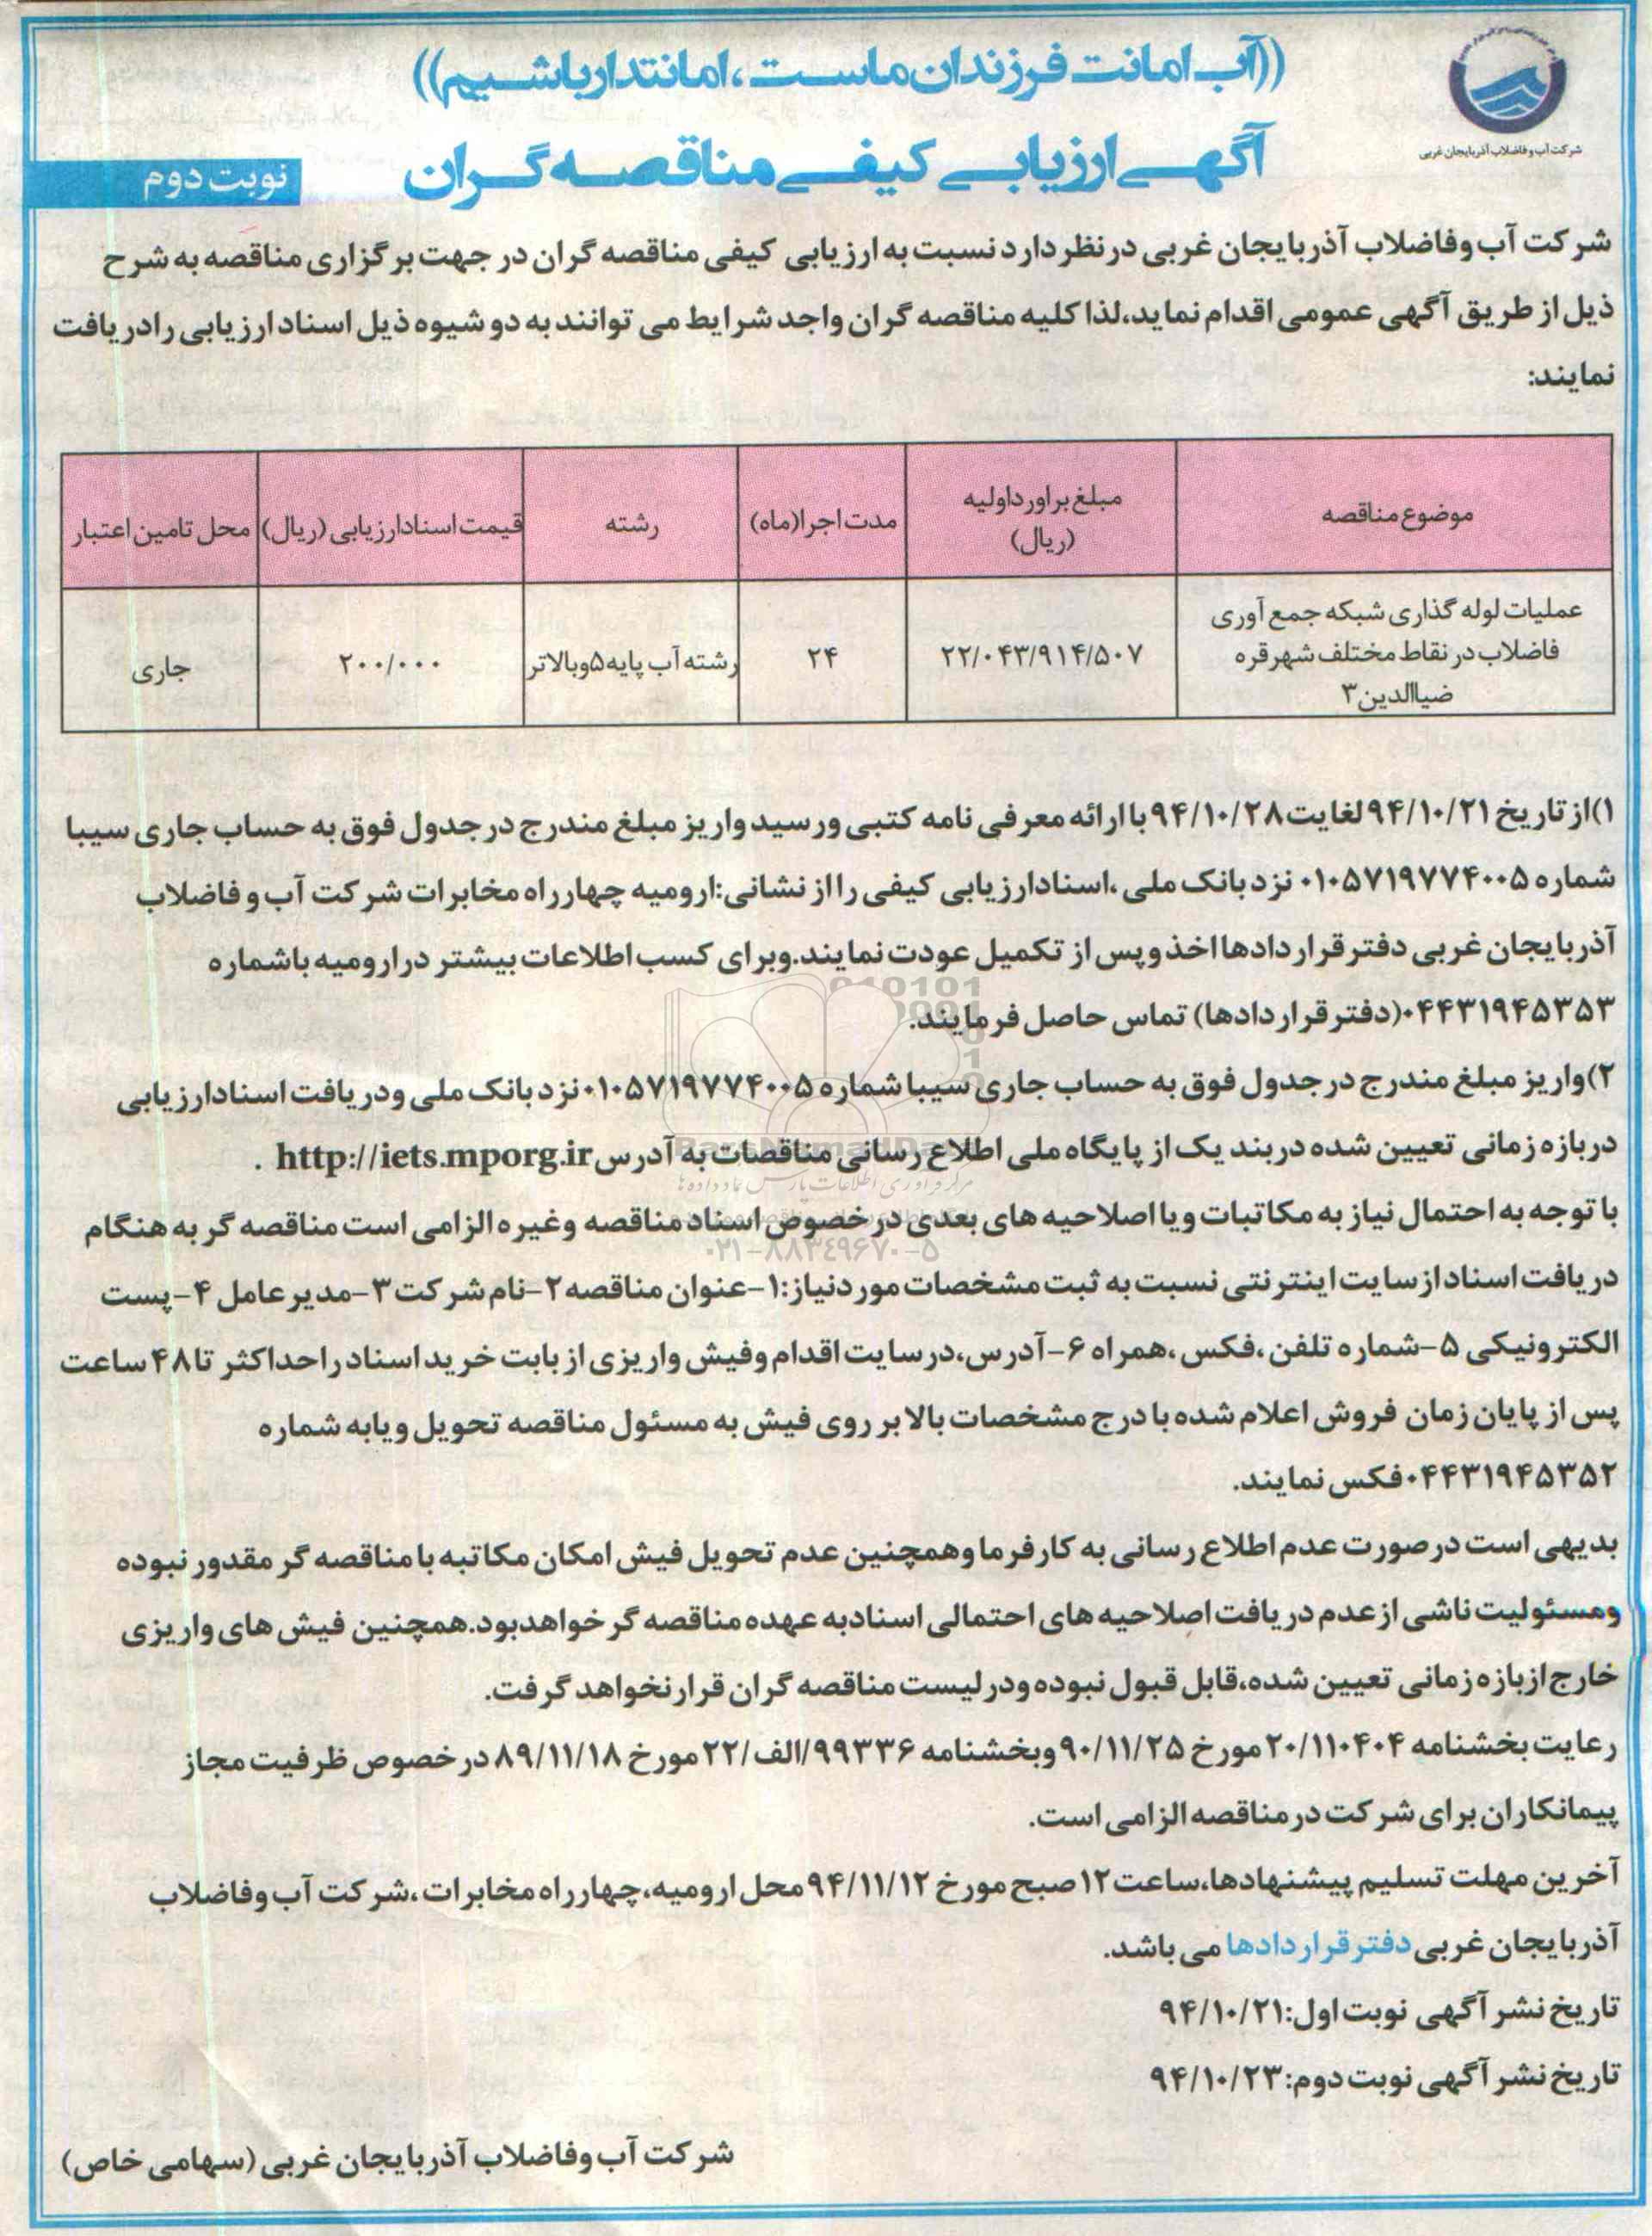 ((آب امانت فرزندان ماست، امانتدار باشیم))
شرکت آب و فاضلاب آذربایجان غربی
آگهی ارزیابی کیفی مناقصه گران
نوبت دوم
شرکت آب وفاضلاب آذربایجان غربی درنظر دارد نسبت به ارزیابی کیفی مناقصه گران در جهت برگزاری مناقصه به شرح
ذیل از طریق آگهی عمومی اقدام نماید،لذا کلیه مناقصه گران واجد شرایط می توانند به دو شیوه ذیل اسناد ارزیابی رادریافت
نمایند:
موضوع مناقصه | مبلغ براورد اولیه (ریال) | مدت اجرا(ماه) | رشته | قیمت اسنادارزیابی (ریال) | محل تامین اعتبار
عملیات لوله گذاری شبکه جمع آوری
فاضلاب در نقاط مختلف شهر قره
ضیاالدین۳ | ۲۲/۰۴۳/۹۱۴/۵۰۷ | ۲۴ | رشته آب پایه۵وبالاتر | ۲۰۰/۰۰۰ | جاری
۱)از تاریخ ۹۴/۱۰/۲۱لغایت۹۴/۱۰/۲۸ با ارائه معرفی نامه کتبی ورسید واریز مبلغ مندرج درجدول فوق به حساب جاری سیبا
شماره ۰۱۰۵۷۱۹۷۷۴۰۰۵ نزد بانک ملی ،اسنادارزیابی کیفی را از نشانی:ارومیه چهارراه مخابرات شرکت آب و فاضلاب
آذربایجان غربی دفترقراردادها اخذ وپس از تکمیل عودت نمایند.وبرای کسب اطلاعات بیشتر درارومیه باشماره
۰۴۴۳۱۹۴۵۳۵۳(دفترقراردادها) تماس حاصل فرمایند.
۲)واریز مبلغ مندرج درجدول فوق به حساب جاری سیبا شماره ۰۱۰۵۷۱۹۷۷۴۰۰۵نزد بانک ملی ودریافت اسنادارزیابی
دربازه زمانی تعیین شده دربند یک از پایگاه ملی اطلاع رسانی مناقصات به آدرس http://iets.mporg.ir .
با توجه به احتمال نیاز به مکاتبات ویااصلاحیه های بعدی درخصوص اسناد مناقصه وغیره الزامی است مناقصه گر به هنگام
۰۲۱-۸۸۳۴۹۶۷۰-۵
دریافت اسناد ازسایت اینترنتی نسبت به ثبت مشخصات موردنیاز:۱-عنوان مناقصه۲-نام شرکت ۳-مدیرعامل ۴-پست
الکترونیکی ۵-شماره تلفن ،فکس ،همراه ۶-آدرس،درسایت اقدام وفیش واریزی از بابت خرید اسناد راحداکثر تا۴۸ساعت
پس از پایان زمان فروش اعلام شده با درج مشخصات بالا بر روی فیش به مسئول مناقصه تحویل ویابه شماره
۰۴۴۳۱۹۴۵۳۵۲فکس نمایند.
بدیهی است درصورت عدم اطلاع رسانی به کارفرما وهمچنین عدم تحویل فیش امکان مکاتبه با مناقصه گر مقدور نبوده
ومسئولیت ناشی ازعدم دریافت اصلاحیه های احتمالی اسنادبه عهده مناقصه گر خواهدبود.همچنین فیش های واریزی
خارج ازبازه زمانی تعیین شده،قابل قبول نبوده ودرلیست مناقصه گران قرارنخواهد گرفت.
رعایت بخشنامه ۲۰/۱۱۰۴۰۴ مورخ ۹۰/۱۱/۲۵ وبخشنامه ۹۹۳۳۶/الف/۲۲ مورخ ۸۹/۱۱/۱۸ درخصوص ظرفیت مجاز
پیمانکاران برای شرکت درمناقصه الزامی است.
آخرین مهلت تسلیم پیشنهادها،ساعت ۱۲صبح مورخ ۹۴/۱۱/۱۲ محل ارومیه،چهارراه مخابرات ،شرکت آب وفاضلاب
آذربایجان غربی دفترقراردادها می باشد.
تاریخ نشر آگهی نوبت اول:۹۴/۱۰/۲۱
تاریخ نشر آگهی نوبت دوم:۹۴/۱۰/۲۳
شرکت آب وفاضلاب آذربایجان غربی (سهامی خاص)